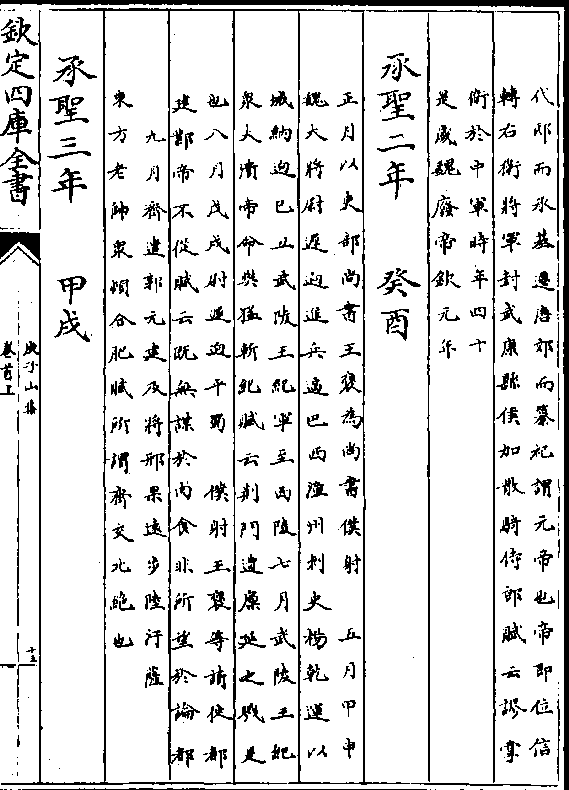 代邸而承基遷唐郊而纂祀謂元帝也帝即位信
轉右衛將軍封武康縣侯加散騎侍郎賦云謬掌
衛於中軍時年四十
是歲魏廢帝欽元年
承聖二年　癸酉
正月以吏部尚書王褒為尚書僕射　五月甲申
魏大將尉遲迥進兵逼巴西潼州刺史楊乾運以
城納迥己丑武陵王紀軍至西陵七月武陵王紀
衆大潰帝命樊猛斬紀賦云荆門遭廪延之戮是
也八月戊戌尉遲迥平蜀　僕射王褒等請徙都
建鄴帝不從賦云既無謀於肉食非所望於論都
九月齊遣郭元建及將邢杲遠步陸汗薩
東方老帥衆頓合肥賦所謂齊交北絶也
承聖三年　甲戌
欽定四庫全書
庾子山集
卷首上
十五